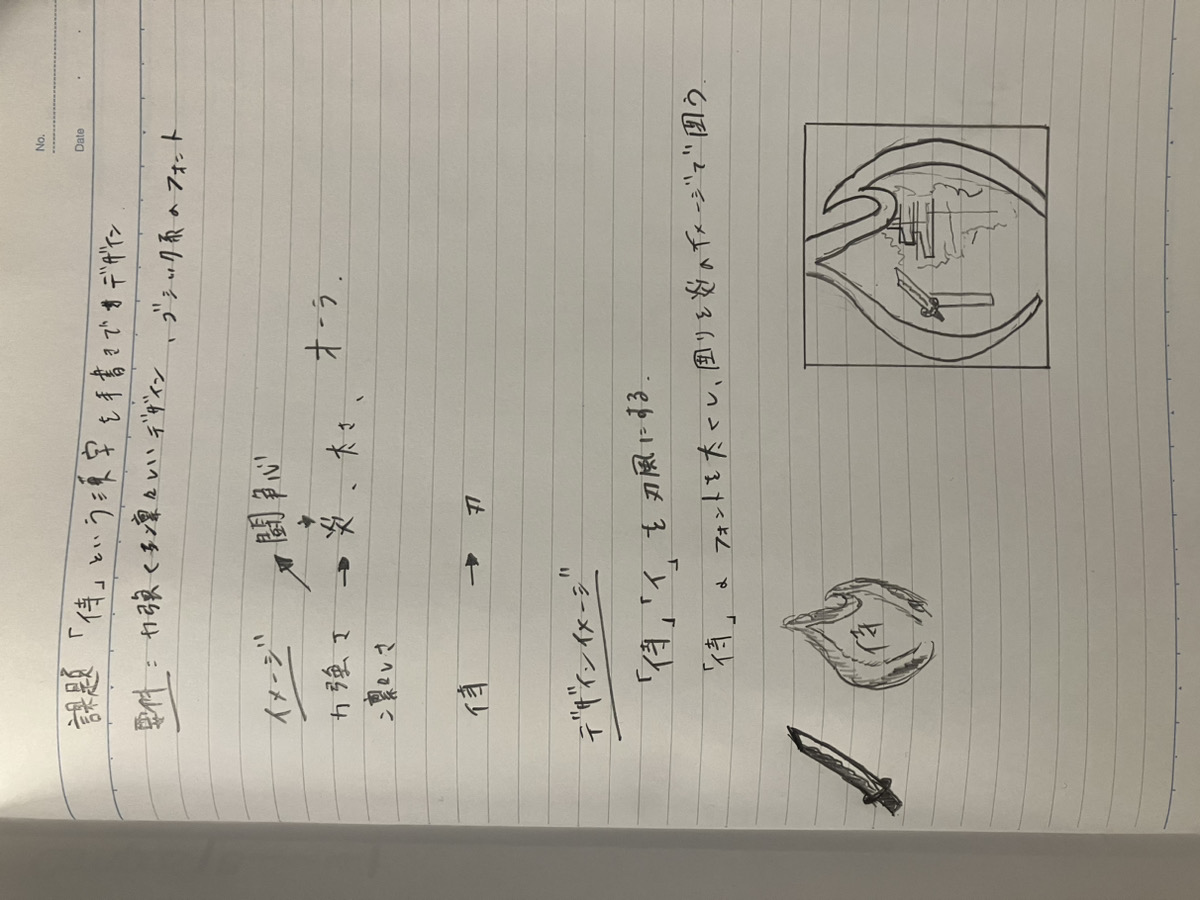 No.
Date
課題 「侍」という漢字を手書きでデザイン
要件: 力強く凛々しいデザイン、ゴシック系のフォント
イメージ → 闘争心
力強さ → 炎、太さ、オーラ.
凛々しさ
侍 → 刃
デザインイメージ
「侍」「イ」を刃風にする.
「侍」のフォントを太くし、囲りを炎のイメージで囲う.
侍